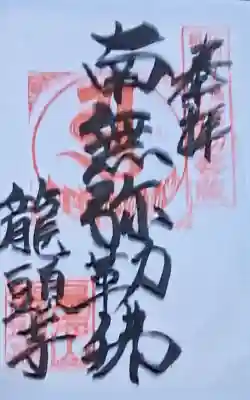 奉拝
南無弥勒佛
龍頭寺